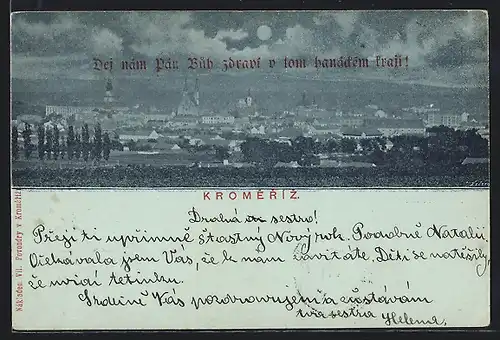 Dej nám Pán Bůh zdraví v tom hanáckém kraji!
KROMĚŘÍŽ.
Nákladem Vil. Povondry v Kroměříži
Drahá sestro!
Přeji ti upřímně šťastný Nový rok. Podobně Natalii.
Očekávala jsem Vás, že k nám zavítáte. Děti se natěšily,
že uvidí tetinku.
Srdečně Vás pozdravujem a zůstávám
tvá sestra Helena.